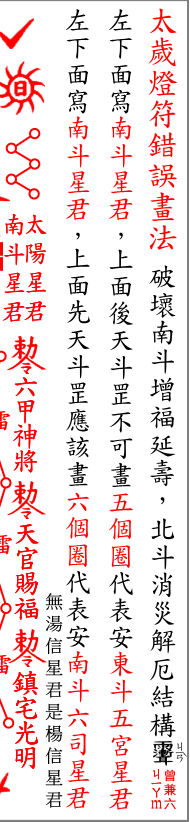 太歲燈符錯誤畫法 破壞南斗增福延壽，北斗消災解厄結構
曾兼六
左下面寫南斗星君，上面後天斗罡不可畫五個圈代表安東斗五宮星君
左下面寫南斗星君，上面先天斗罡應該畫六個圈代表安南斗六司星君
無湯信星君是楊信星君
太陽星君
南斗星君
勅令六甲神將 勅令天官賜福 勅令鎮宅光明
雷
雷
雷